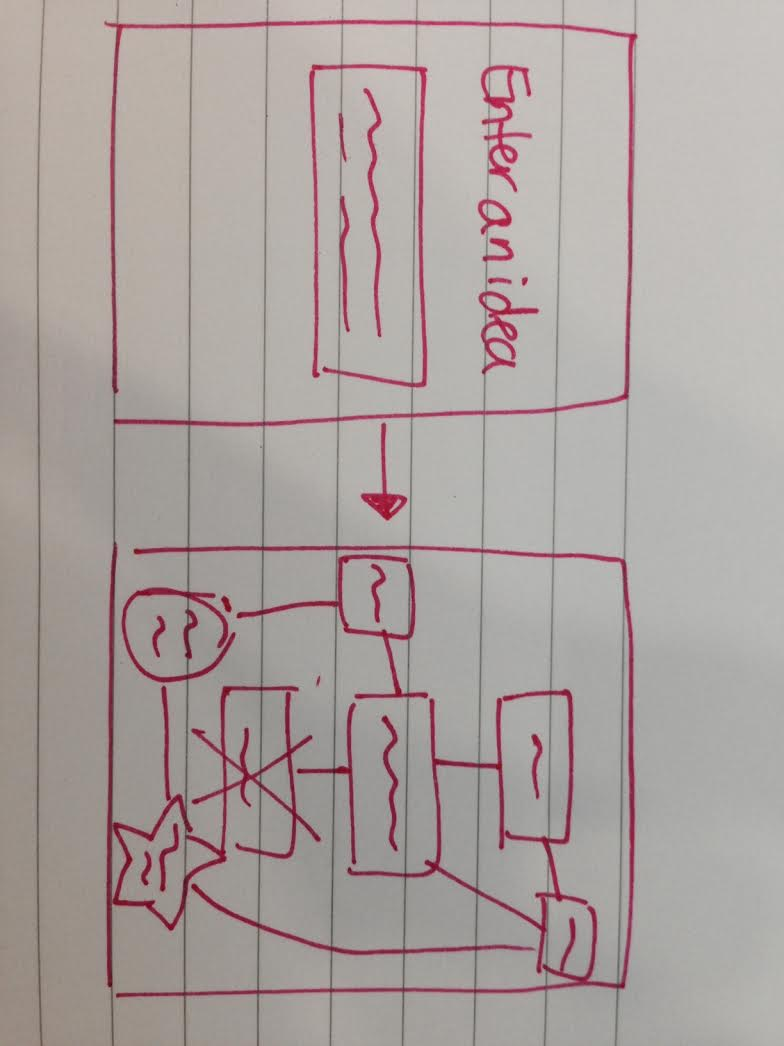 Enter an idea